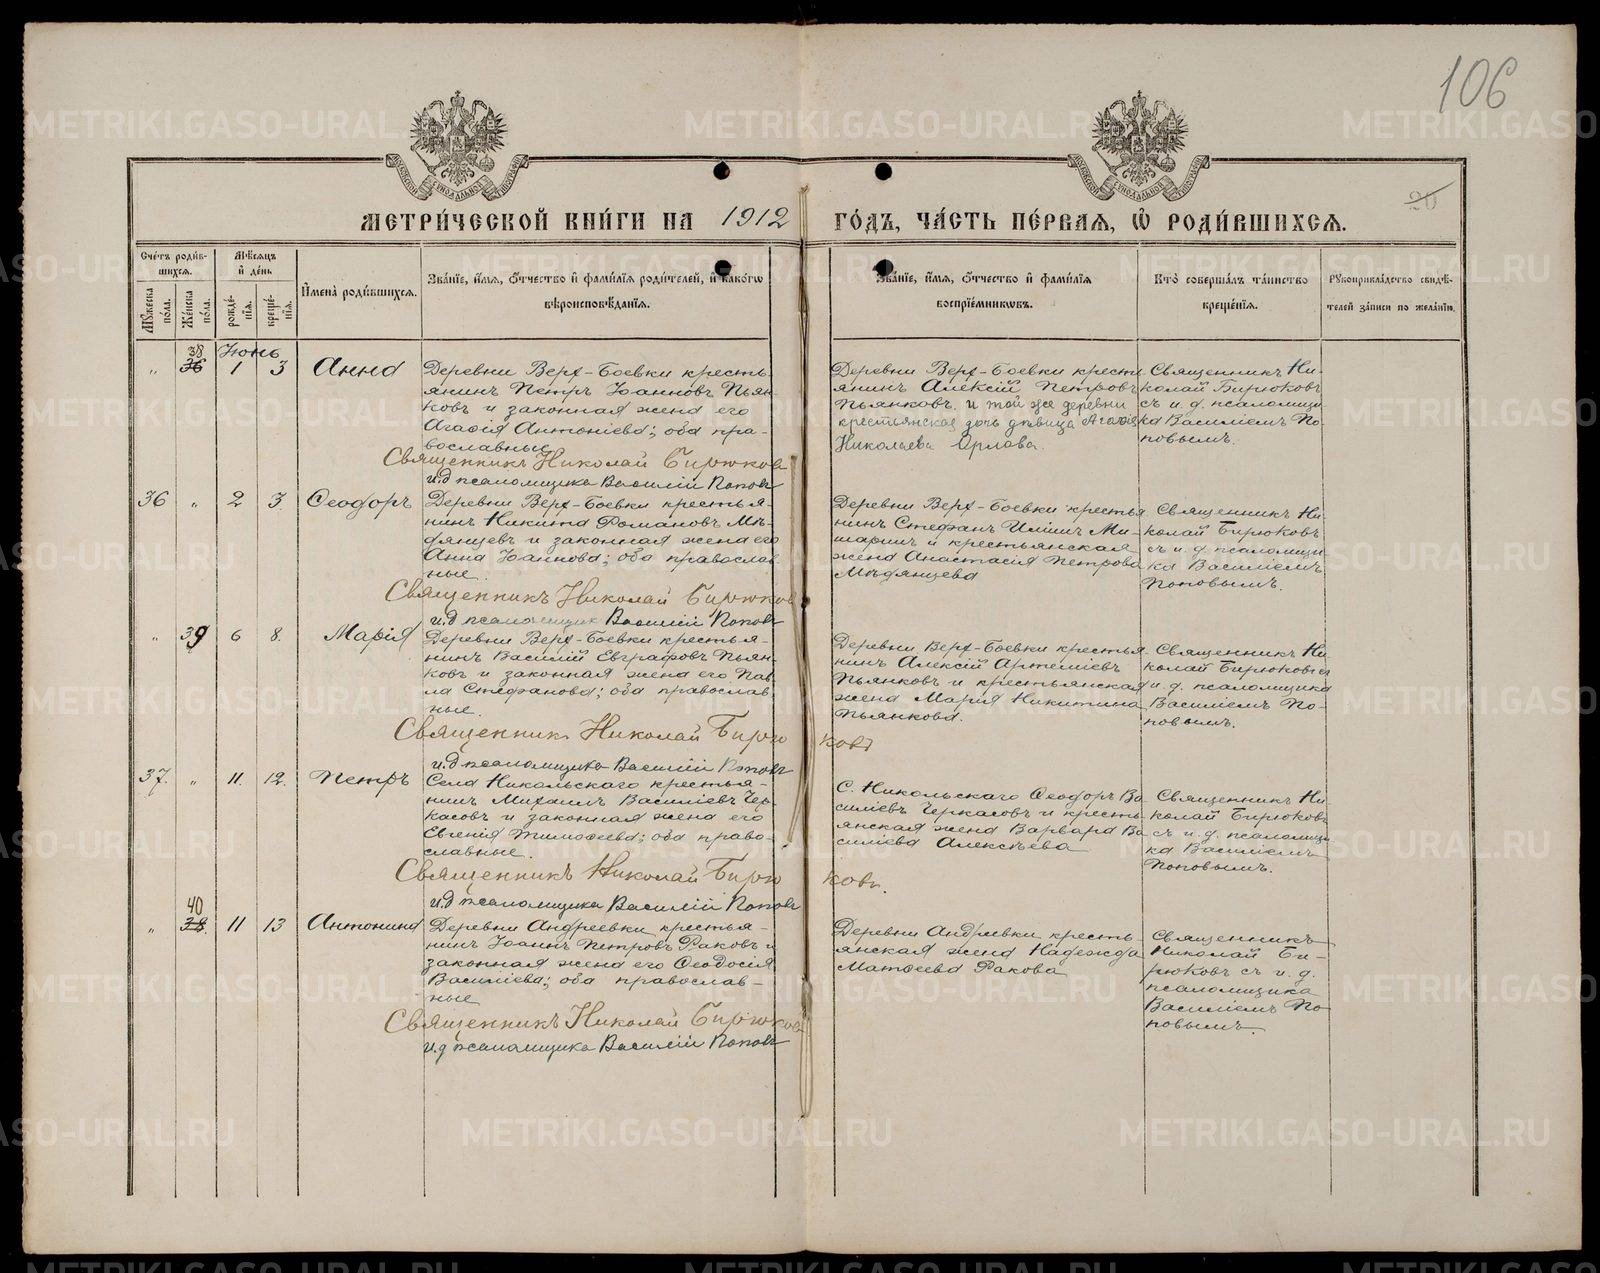 106
20
МЕТРИ́ЧЕСКОЙ КНИ́ГИ НА 1912 ГО́ДЪ, ЧА́СТЬ ПЕ́РВАЯ, Ѡ҆ РОДИ́ВШИХСЯ.
Сче́тъ роди́в-
шихся.
Мѣ́сяцъ
и҆ де́нь
Мꙋ́жеска по́ла.
Же́нска по́ла.
рожде́-
нїя.
креще́-
нїя.
И҆мена̀ роди́вшихся.
Зва́нїе, и҆́мя, ѻ҆́тчество и҆ фами́лїя роди́телей, и҆ како́гѡ
вѣроисповѣ́данїя.
Зва́нїе, и҆́мя, ѻ҆́тчество и҆ фами́лїя
воспрїе́мниковъ.
Кто̀ соверша́лъ та́инство
креще́нїя.
Рꙋкоприкла́дство свидѣ́-
телей за́писи по жела́нїю.
Іюнь
38
„ 36 1 3 Анна
Деревни Верх-Боевки кресть-
янинъ Петръ Іоанновъ Пьян-
ковъ и законная жена его
Агафія Антоніева; оба пра-
вославные
Священникъ Николай Бирюковъ
и.д псаломщика Василій Поповъ
Деревни Верх-Боевки кресть
янинъ Алексій Петровъ
Пьянковъ. и той же деревни
крестьянская дочь девица Агафія
Николаева Орлова.
Священникъ Ни-
колай Бирюковъ
съ и. д. псаломщи
ка Василіемъ По-
повымъ.
36 „ 2 3. Ѳеодоръ
Деревни Верх-Боевки крестья-
нинъ Никита Романовъ Мѣ-
дянцевъ и законная жена его
Анна Іоаннова; оба православ
ные.
Священникъ Николай Бирюковъ
и.д псаломщик Василій Поповъ
Деревни Верх-Боевки крестья
нинъ Стефан Иліинъ Ми-
и крестьянская
жена Анастасія Петрова
Мѣдянцева
Священникъ Ни-
колай Бирюковъ
съ и. д. псаломщи
ка Василіемъ
Поповымъ.
„ 39 6 8. Марія
Деревни Верх-Боевки крестья-
нинъ Василій Евграфовъ Пьян-
ковъ и законная жена его Пав
ла Стефанова; оба православ
ные.
Священник Николай Бирю ковъ
и.д псаломщика Василій Поповъ
Деревни Верх-Боевки крестья
нинъ Алексій Артеміевъ
Пьянковъ и крестьянская
жена Марія Никитина
Пьянкова.
Священникъ Ни-
колай Бирюковъ съ
и. д. псаломщика
Василіемъ По-
повымъ.
37. „ 11. 12. Петръ
Села Никольскаго крестья-
нинъ Михаилъ Василіевъ Чер-
касовъ и законная жена его
Евгенія Тимофеева; оба право-
славные.
Священникъ Николай Бирю ковъ.
и.д псаломщика Василій Поповъ
С. Никольскаго Ѳеодоръ Ва
силіевъ Черкасовъ и кресть-
янская жена Варвара Ва
силіева Алексѣева
Священникъ Ни-
колай Бирюковъ
съ и. д. псаломщи
ка Василіемъ
Поповымъ.
40
„ 38. 11 13 Антонина
Деревни Андреевки крестья-
нинъ Іоаннъ Петровъ Раковъ и
законная жена его Ѳеодосія
Василіева; оба православ-
ные
Священникъ Николай Бирюков
и.д псаломщика Василій Поповъ
Деревни Андреевки кресть-
янская жена Надежда
Матѳеева Ракова
Священникъ
Николай Би-
рюковъ съ и. д.
псаломщика
Василіемъ По
повымъ.
METRIKI.GASO-URAL.RU